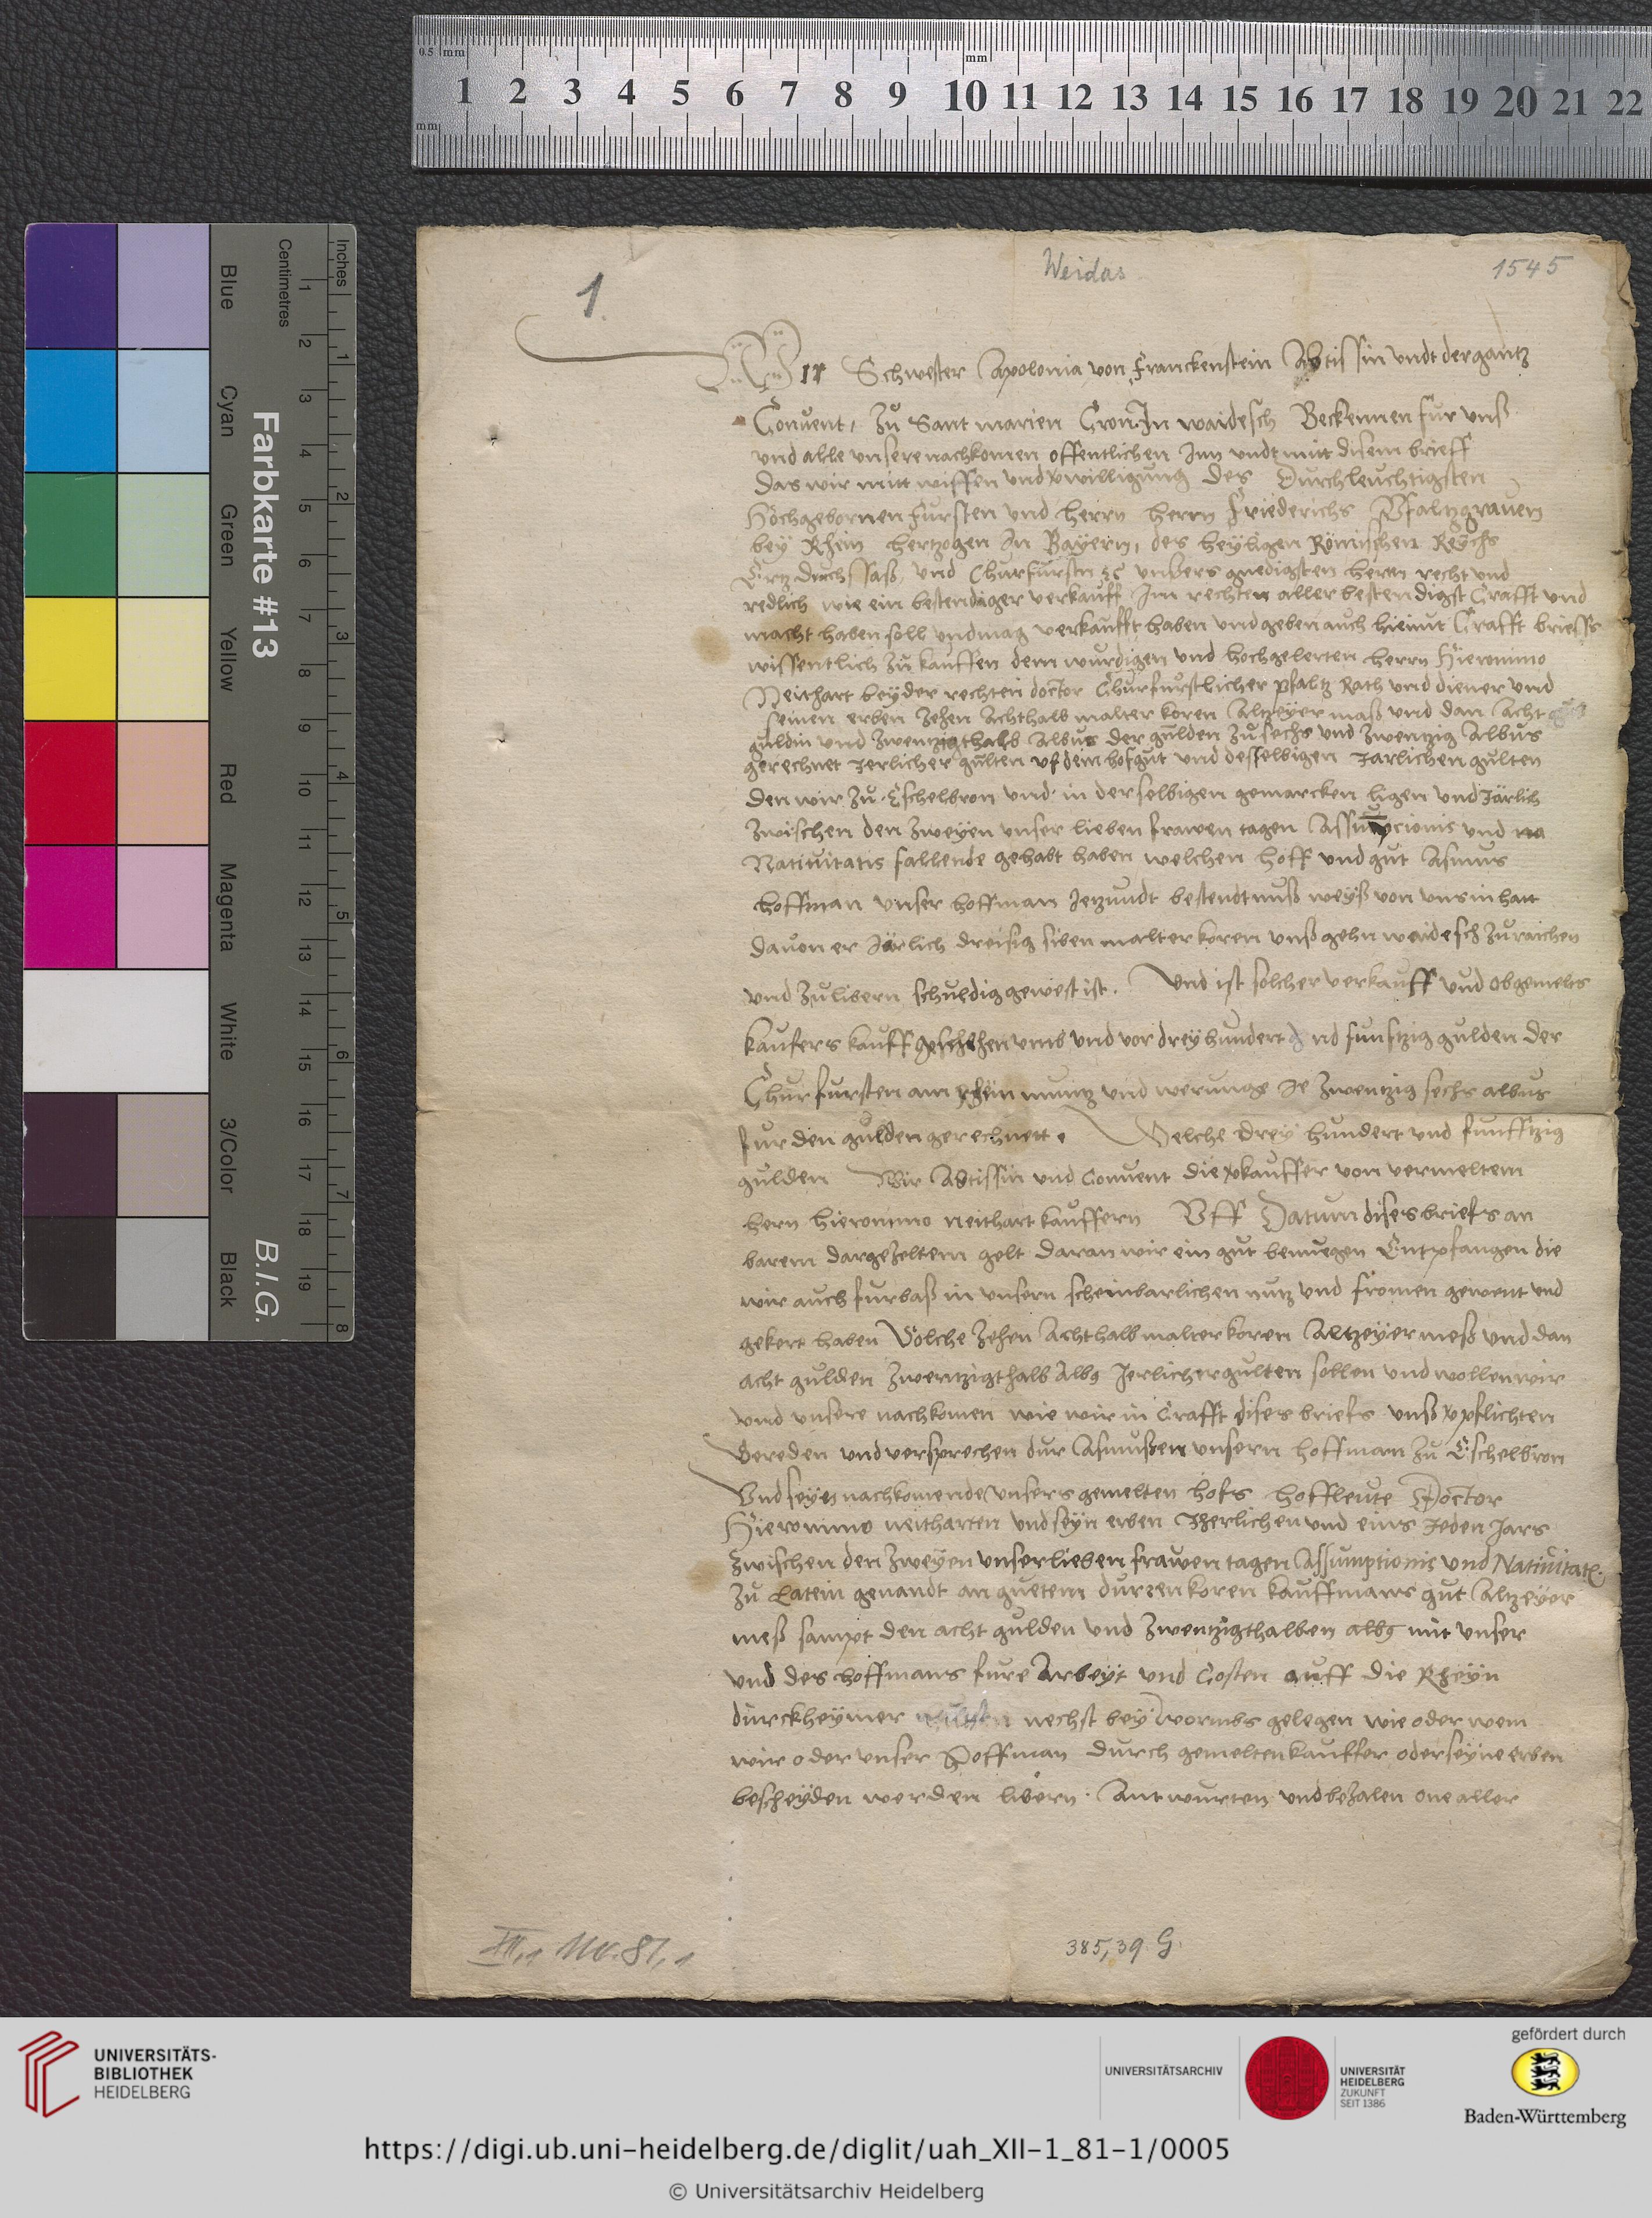 0.5 mm
mm
mm
1 2 3 4 5 6 7 8 9 10 11 12 13 14 15 16 17 18 19 20 21 22
Farbkarte #13
B.I.G.
Centimetres
Inches
Blue
Cyan
Green
Yellow
Red
Magenta
White
3/Color
Black
1 2 3 4 5 6 7 8 9 10 11 12 13 14 15 16 17 18 19
1 2 3 4 5 6 7 8
1
Weidas
1545
Wir Schwester Apolonia von Franckenstein Abtissin undt der gantz
Convent, zu Sant marien Cron In waidesch Beckennen fur unß
und alle unsere nachkomen offentlichen Inn undt mitt disem brieff
Das wir mitt wissen und vwilligung des Durchleuchtigsten
Hochgebornen fursten und herrn herrn Friederichs Pfaltzgraven
bey Rhein hertzogen in Bayern, des heyligen Römischen Reychs
Ertzdruchssaß und Churfurstn unsers gnedigsten herrn recht und
redlich wie ein bestendiger verkauff Im rechten aller bestendigst Crafft und
macht haben soll und mag verkaufft haben und geben auch hiemit Crafft brieffs
wissentlich zu kauffen dem wurdigen und hochgelerten herrn Hieronimo
Neithart beyder rechten doctor Churfurstlicher pfaltz Rath und diener und
seinen erben zehen Achthalb malter koren Altzeyer maß und dan Acht
guldin und zwentzigthalb Albus der gulden zu sechs und zwentzig Albus
gerechnet Ierlicher gulten uf dem hofgut und desselbigen Iarlichen gulten
den wir zu Eschelbron und in derselbigen gemarcken ligen und Järlich
zwischen den zweyen unser lieben frawen tagen Assumpcionis und na
Nativitatis fallende gehabt haben welchen hoff und gut Asmus
hoffman unser hoffman Ietzundt bestendtnuß weyß von uns in hatt
davon er Järlich dreisig siben malter koren unß gehn weidesch zu raichen
und zu libern schuldig gewest ist. Und ist solcher verkauff und obgemelts
kaufers kauff geschehen umb und vor drey hundert und funftzig gulden der
Churfursten am Rhein muntz und werunge Ie zwentzig sechs albus
fur den gulden gerechnett. Welche drey hundert und funfftzig
gulden Wir Abtissin und Convent die vkauffer von vermeltem
hern hieronimo neithart kauffern Uff Datum dises briefs an
barem dargezeltem gelt daran wir ein gut benuegen Entpfangen die
wir auch furbaß in unsern scheinbarlichen nutz und fromen gewent und
gekert haben Solche zehen Achthalb malter koren Altzeyer meß und dan
acht gulden zwentzigthalb Albg Ierlicher gulten sollen und wollen wir
und unsere nachkomen wie wir in Crafft dises briefs unß vpflichten
Vereden und versprechen dur Asmußen unsern hoffman zu Eschelbron
Und seyn nachkomende unsers gemelten hofs hoffleute Doctor
Hieronimo neitharten und seyn erben Iherlichen und eins Ieden Jars
zwischen den zweyen unser lieben frawen tagen Assumptionis und Nativitatis
zu Latein genandt an guetem durren koren kauffmans gut Altzeyer
meß sampt den acht gulden und zwentzigthalben albg mit unser
und des hoffmans fure Arbeyt und Costen auff die Rheyn
durckheymer nechst bey wormbs gelegen wie oder wem
wir oder unser Hoffman durch gemelten kauffer oder seyne erben
bescheyden werden libern Antwurten und bezalen one aller
XII,1 Nr. 81,1
385,39 G.
UNIVERSITÄTS-
BIBLIOTHEK
HEIDELBERG
UNIVERSITÄTSARCHIV
UNIVERSITÄT
HEIDELBERG
ZUKUNFT
SEIT 1386
gefördert durch
Baden-Württemberg
https://digi.ub.uni-heidelberg.de/diglit/uah_XII-1_81-1/0005
© Universitätsarchiv Heidelberg